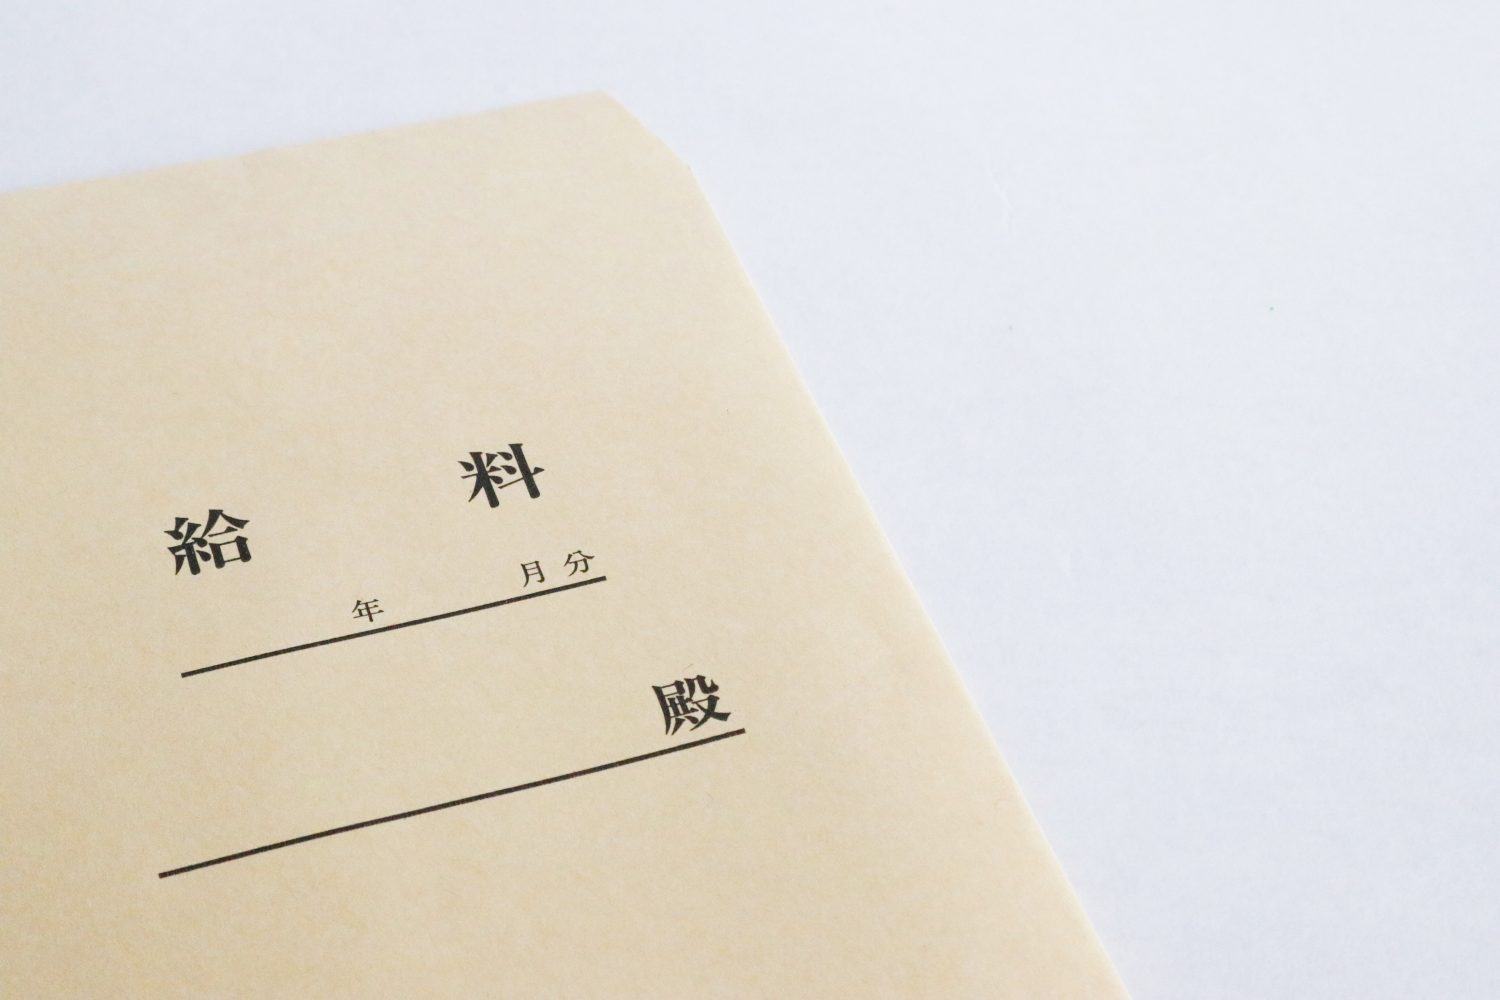 給 料
年 月 分
殿